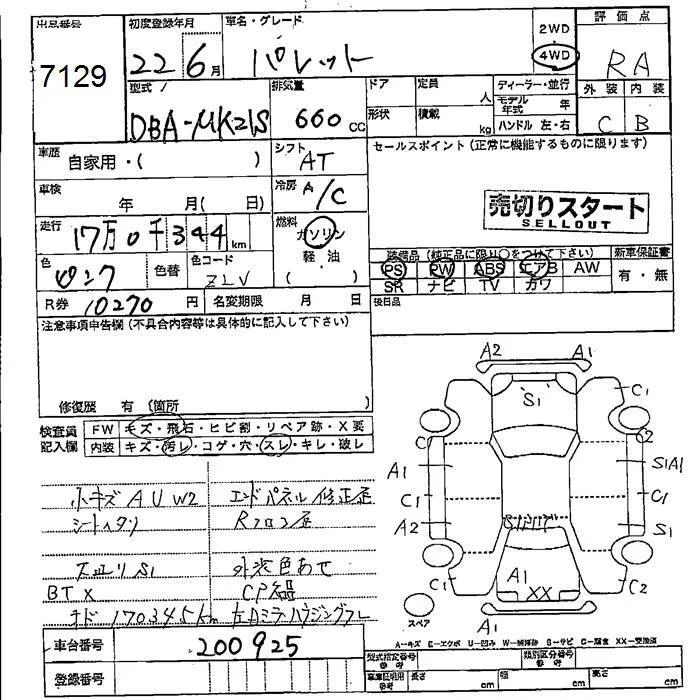 出品番号 初度登録年月 車名・グレード 2WD 評価点
7129 22年6月 パレット 4WD RA
型式 排気量 ドア 定員 人 ディーラー・並行 外装 内装
DBA-MK21S 660cc 形状 積載 kg モデル年式 年 ハンドル 左・右 C B
車歴 自家用・( ) シフト AT セールスポイント(正常に機能するものに限ります)
車検 年 月( 日) 冷房 A/C
売切りスタート
SELLOUT
走行 17万0千344km 燃料 ガソリン
軽・油
( )
装備品(純正品に限り○をつけて下さい) 新車保証書
色 ピンク 色替 色コード ZLV
PS PW ABS エアB AW 有・無
SR ナビ TV カワ
R券 10270円 名変期限 月 日 後日品
注意事項申告欄(不具合内容等は具体的に記入して下さい)
修復歴 有 (箇所 )
検査員 FW キズ・飛石・ヒビ割・リペア跡・X要
記入欄 内装 キズ・汚レ・コゲ・穴・スレ・キレ・破レ
A2 A1
S1 C1
C1 C2
A1 S1A1
C1 C1
A2 S1
C1 A1 XX C2
A1
スペア
小キズ A U W2 エンドパネル修正歴
シートヘタリ Rフロア歴
下回リS1 外装色あせ
BT X
チド 170345km 左ドミラーハウジング
A-キズ E-エクボ U-凹み W-補修跡 S-サビ C-腐食 XX-交換済
車台番号 200925
型式指定番号 類別区分番号
登録番号
車庫証明用 長さ cm 幅 cm 高さ cm